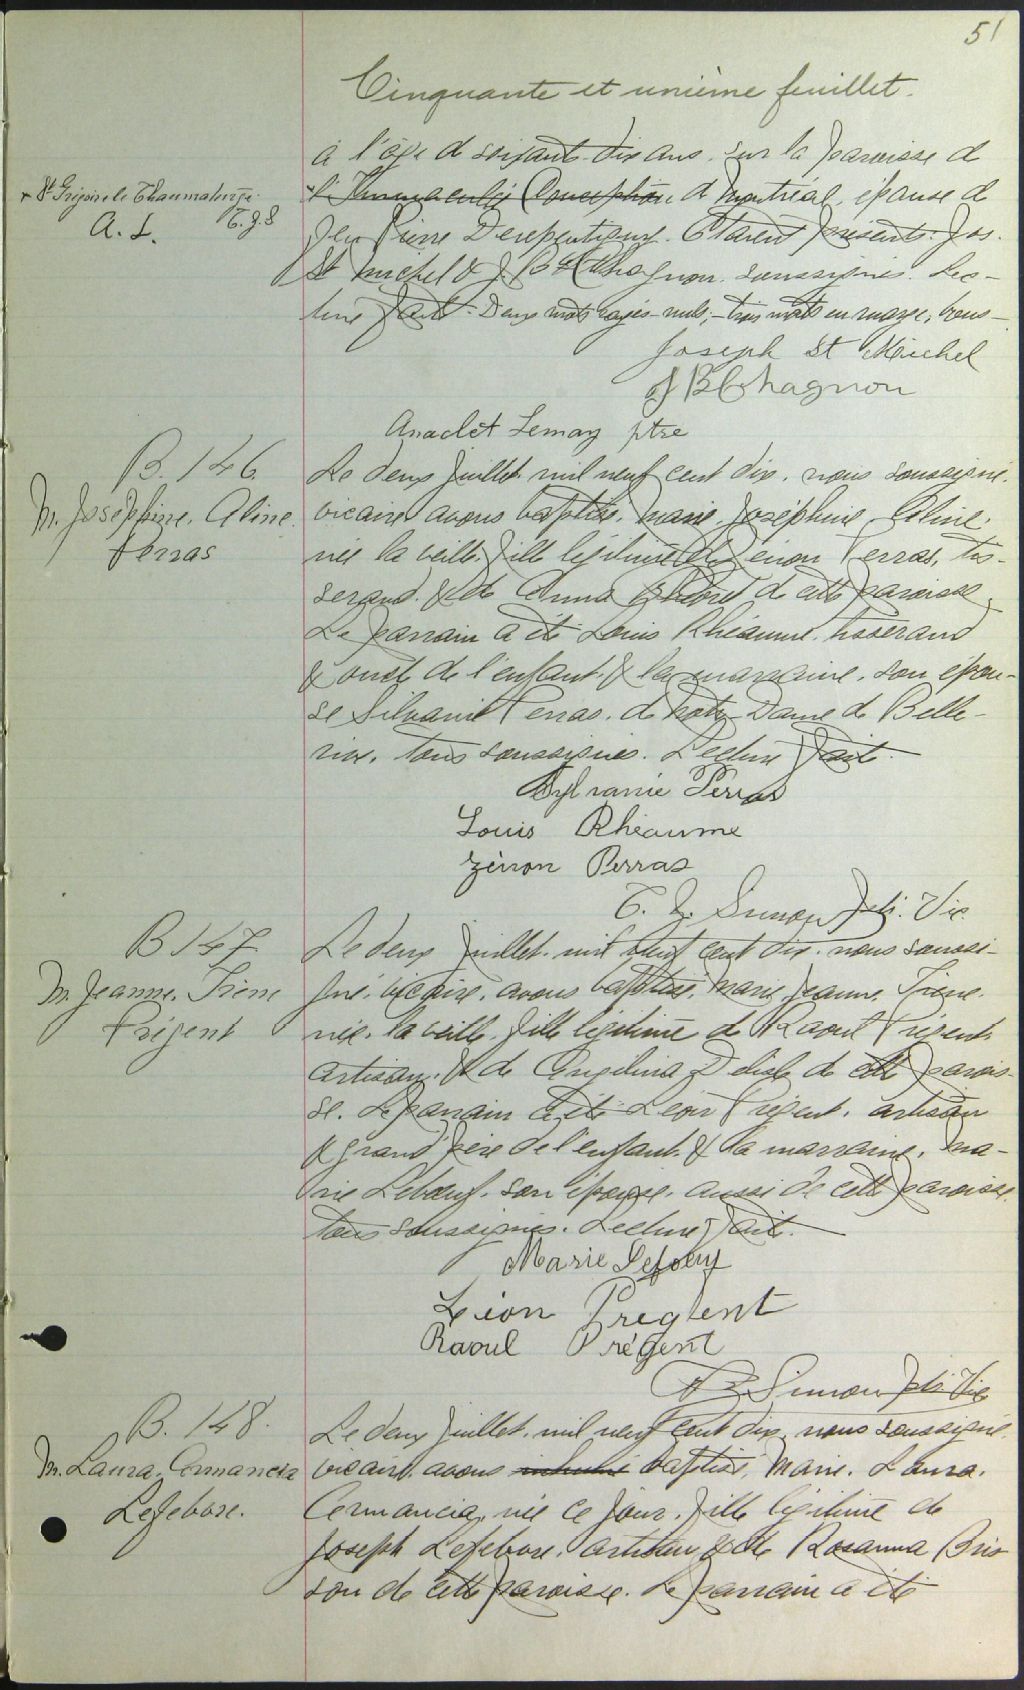 51
Cinquante et unième feuillet.
à l'âge de soixante-dix ans, sur la paroisse de
+ St Grégoire le Thaumaturge
A. L. T. Z. S
+ l'Immaculée Conception de Montréal, épouse de
Jean Pierre Derepentigny. Etaient présents: Jos.
St Michel & J. Bte Chagnon, soussignés. Lec-
ture faite. Deux mots rayés nuls; trois mots en marge, bons
Joseph St Michel
J B Chagnon
Anaclet Lemay ptre
B. 146.
M. Joséphine. Aline.
Perras
Le deux juillet mil neuf cent dix, nous soussigné,
vicaire avons baptisé, Marie, Joséphine Aline,
née la veille, fille légitime de Zénon Perras, tis-
serand, & de Anna de cette paroisse.
Le parrain a été Louis Rhéaume, tisserand
& oncle de l'enfant, & la marraine, son épou-
se Silvanie Perras, de Notre-Dame de Belle-
rive, tous soussignés. Lecture faite.
Sylvanie Perras
Louis Rhéaume
Zénon Perras
T. Z. Simon ptr. Vic
B 147
M. Jeanne. Irène
Prégent
Le deux juillet, mil neuf cent dix, nous soussi-
gné, vicaire, avons baptisé, Marie, Jeanne, Irène,
née, la veille, fille légitime de Raoul Prégent,
artisan, & de Angélina Delisle de cette parois-
se. Le parrain a été Léon Prégent, artisan
& grand'père de l'enfant & la marraine, Ma-
rie Lebœuf, son épouse, aussi de cette paroisse,
tous soussignés. Lecture faite.
Marie
Léon Pregent
Raoul Prégent
T Z Simon ptr. Vic
B. 148.
M. Laura. Cermancia
Lefebvre.
Le deux juillet, mil neuf cent dix, nous soussigné,
vicaire, avons inhumé baptisé, Marie. Laura.
Cermancia, née ce jour, fille légitime de
Joseph Lefebvre, artisan & de Rosanna Bris
son de cette paroisse. Le parrain a été